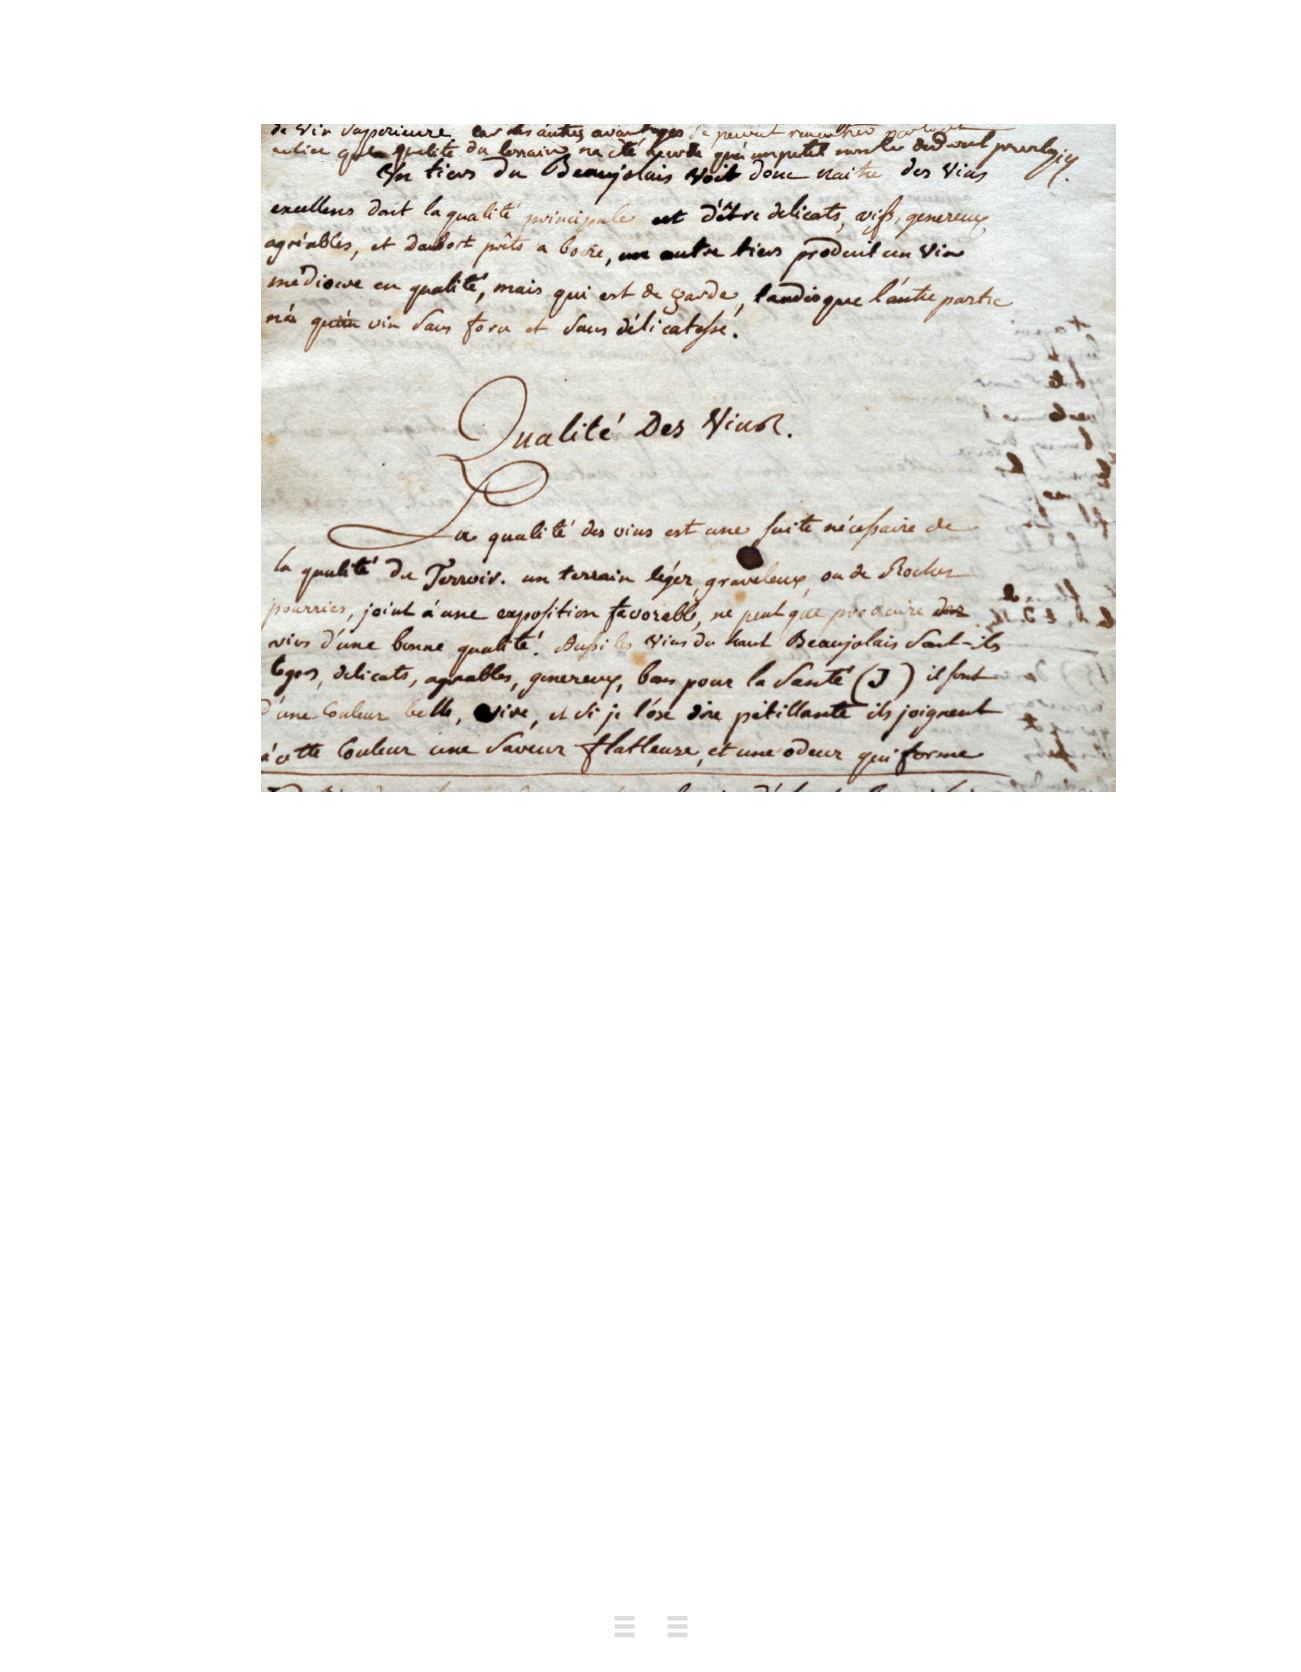 de vin superieure. car les autres avantages se peuvent rencontrer partout
que qualité du terrain na été qu'un petit nombre
Un tiers du Beaujolais voit donc naitre des vins
excellens dont la qualité principale est d'être delicats, vifs, genereux,
agréables, et dabort prêts a boire, un autre tiers produit un vin
médiocre en qualité, mais qui est de garde, tandisque l'autre partie
n'a qu'un vin sans force et sans délicatesse.
Qualité Des Vins.
La qualité des vins est une suite nécessaire de
la qualité du Terroir. un terrain léger, graveleux, ou de Roches
pourries, joint à une exposition favorable, ne peut que produire des
vins d'une bonne qualité. Aussi les vins du haut Beaujolais sont-ils
legers, delicats, agreables, genereux, bons pour la santé (J) il sont
d'une Couleur belle, vive, et si je l'ose dire pétillante ils joignent
à cette Couleur une saveur flatteuse, et une odeur qui forme